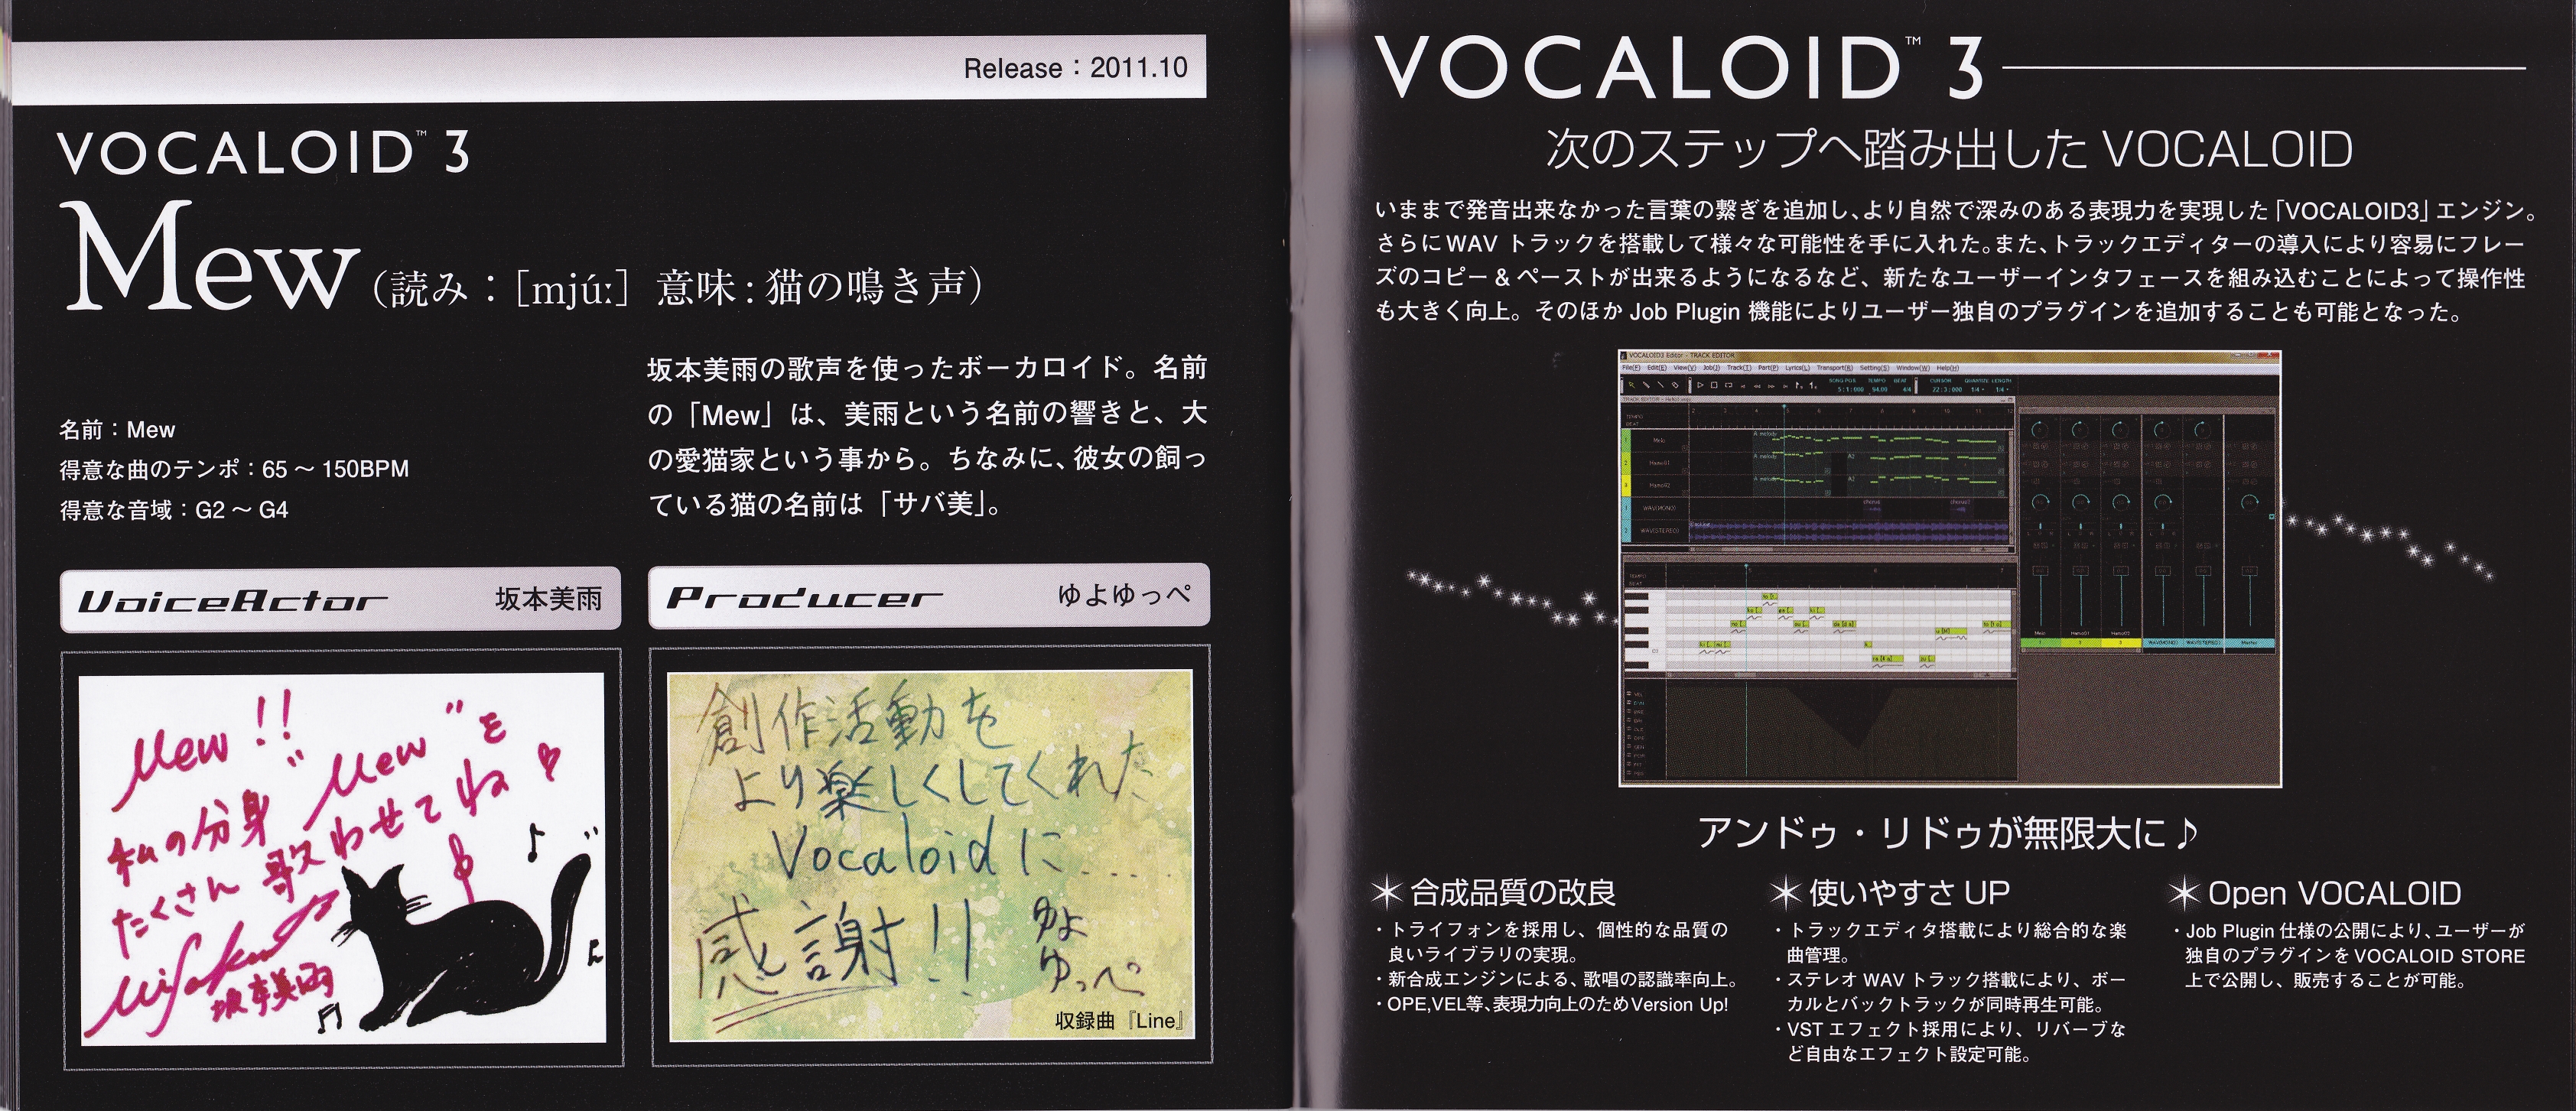 Release：2011.10
VOCALOID™ 3
Mew（読み：[mjúː] 意味：猫の鳴き声）
名前：Mew
得意な曲のテンポ：65 ～ 150BPM
得意な音域：G2 ～ G4
坂本美雨の歌声を使ったボーカロイド。名前
の「Mew」は、美雨という名前の響きと、大
の愛猫家という事から。ちなみに、彼女の飼っ
ている猫の名前は「サバ美」。
VoiceActor 坂本美雨
Mew!!
"Mew"を
私の分身
たくさん歌わせてね♡
坂本美雨
Producer ゆよゆっぺ
創作活動を
より楽しくしてくれた
Vocaloidに....
感謝!!
ゆよ
ゆっぺ
収録曲『Line』
VOCALOID™ 3
次のステップへ踏み出した VOCALOID
いままで発音出来なかった言葉の繋ぎを追加し、より自然で深みのある表現力を実現した「VOCALOID3」エンジン。
さらにWAV トラックを搭載して様々な可能性を手に入れた。また、トラックエディターの導入により容易にフレー
ズのコピー & ペーストが出来るようになるなど、新たなユーザーインタフェースを組み込むことによって操作性
も大きく向上。そのほか Job Plugin 機能によりユーザー独自のプラグインを追加することも可能となった。
VOCALOID3 Editor - TRACK EDITOR
File(F) Edit(E) View(V) Job(J) Track(T) Part(P) Lyrics(L) Transport(R) Setting(S) Window(W) Help(H)
アンドゥ・リドゥが無限大に♪
合成品質の改良
・トライフォンを採用し、個性的な品質の
良いライブラリの実現。
・新合成エンジンによる、歌唱の認識率向上。
・OPE,VEL等、表現力向上のためVersion Up!
使いやすさ UP
・トラックエディタ搭載により総合的な楽
曲管理。
・ステレオ WAV トラック搭載により、ボー
カルとバックトラックが同時再生可能。
・VST エフェクト採用により、リバーブな
ど自由なエフェクト設定可能。
Open VOCALOID
・Job Plugin 仕様の公開により、ユーザーが
独自のプラグインを VOCALOID STORE
上で公開し、販売することが可能。